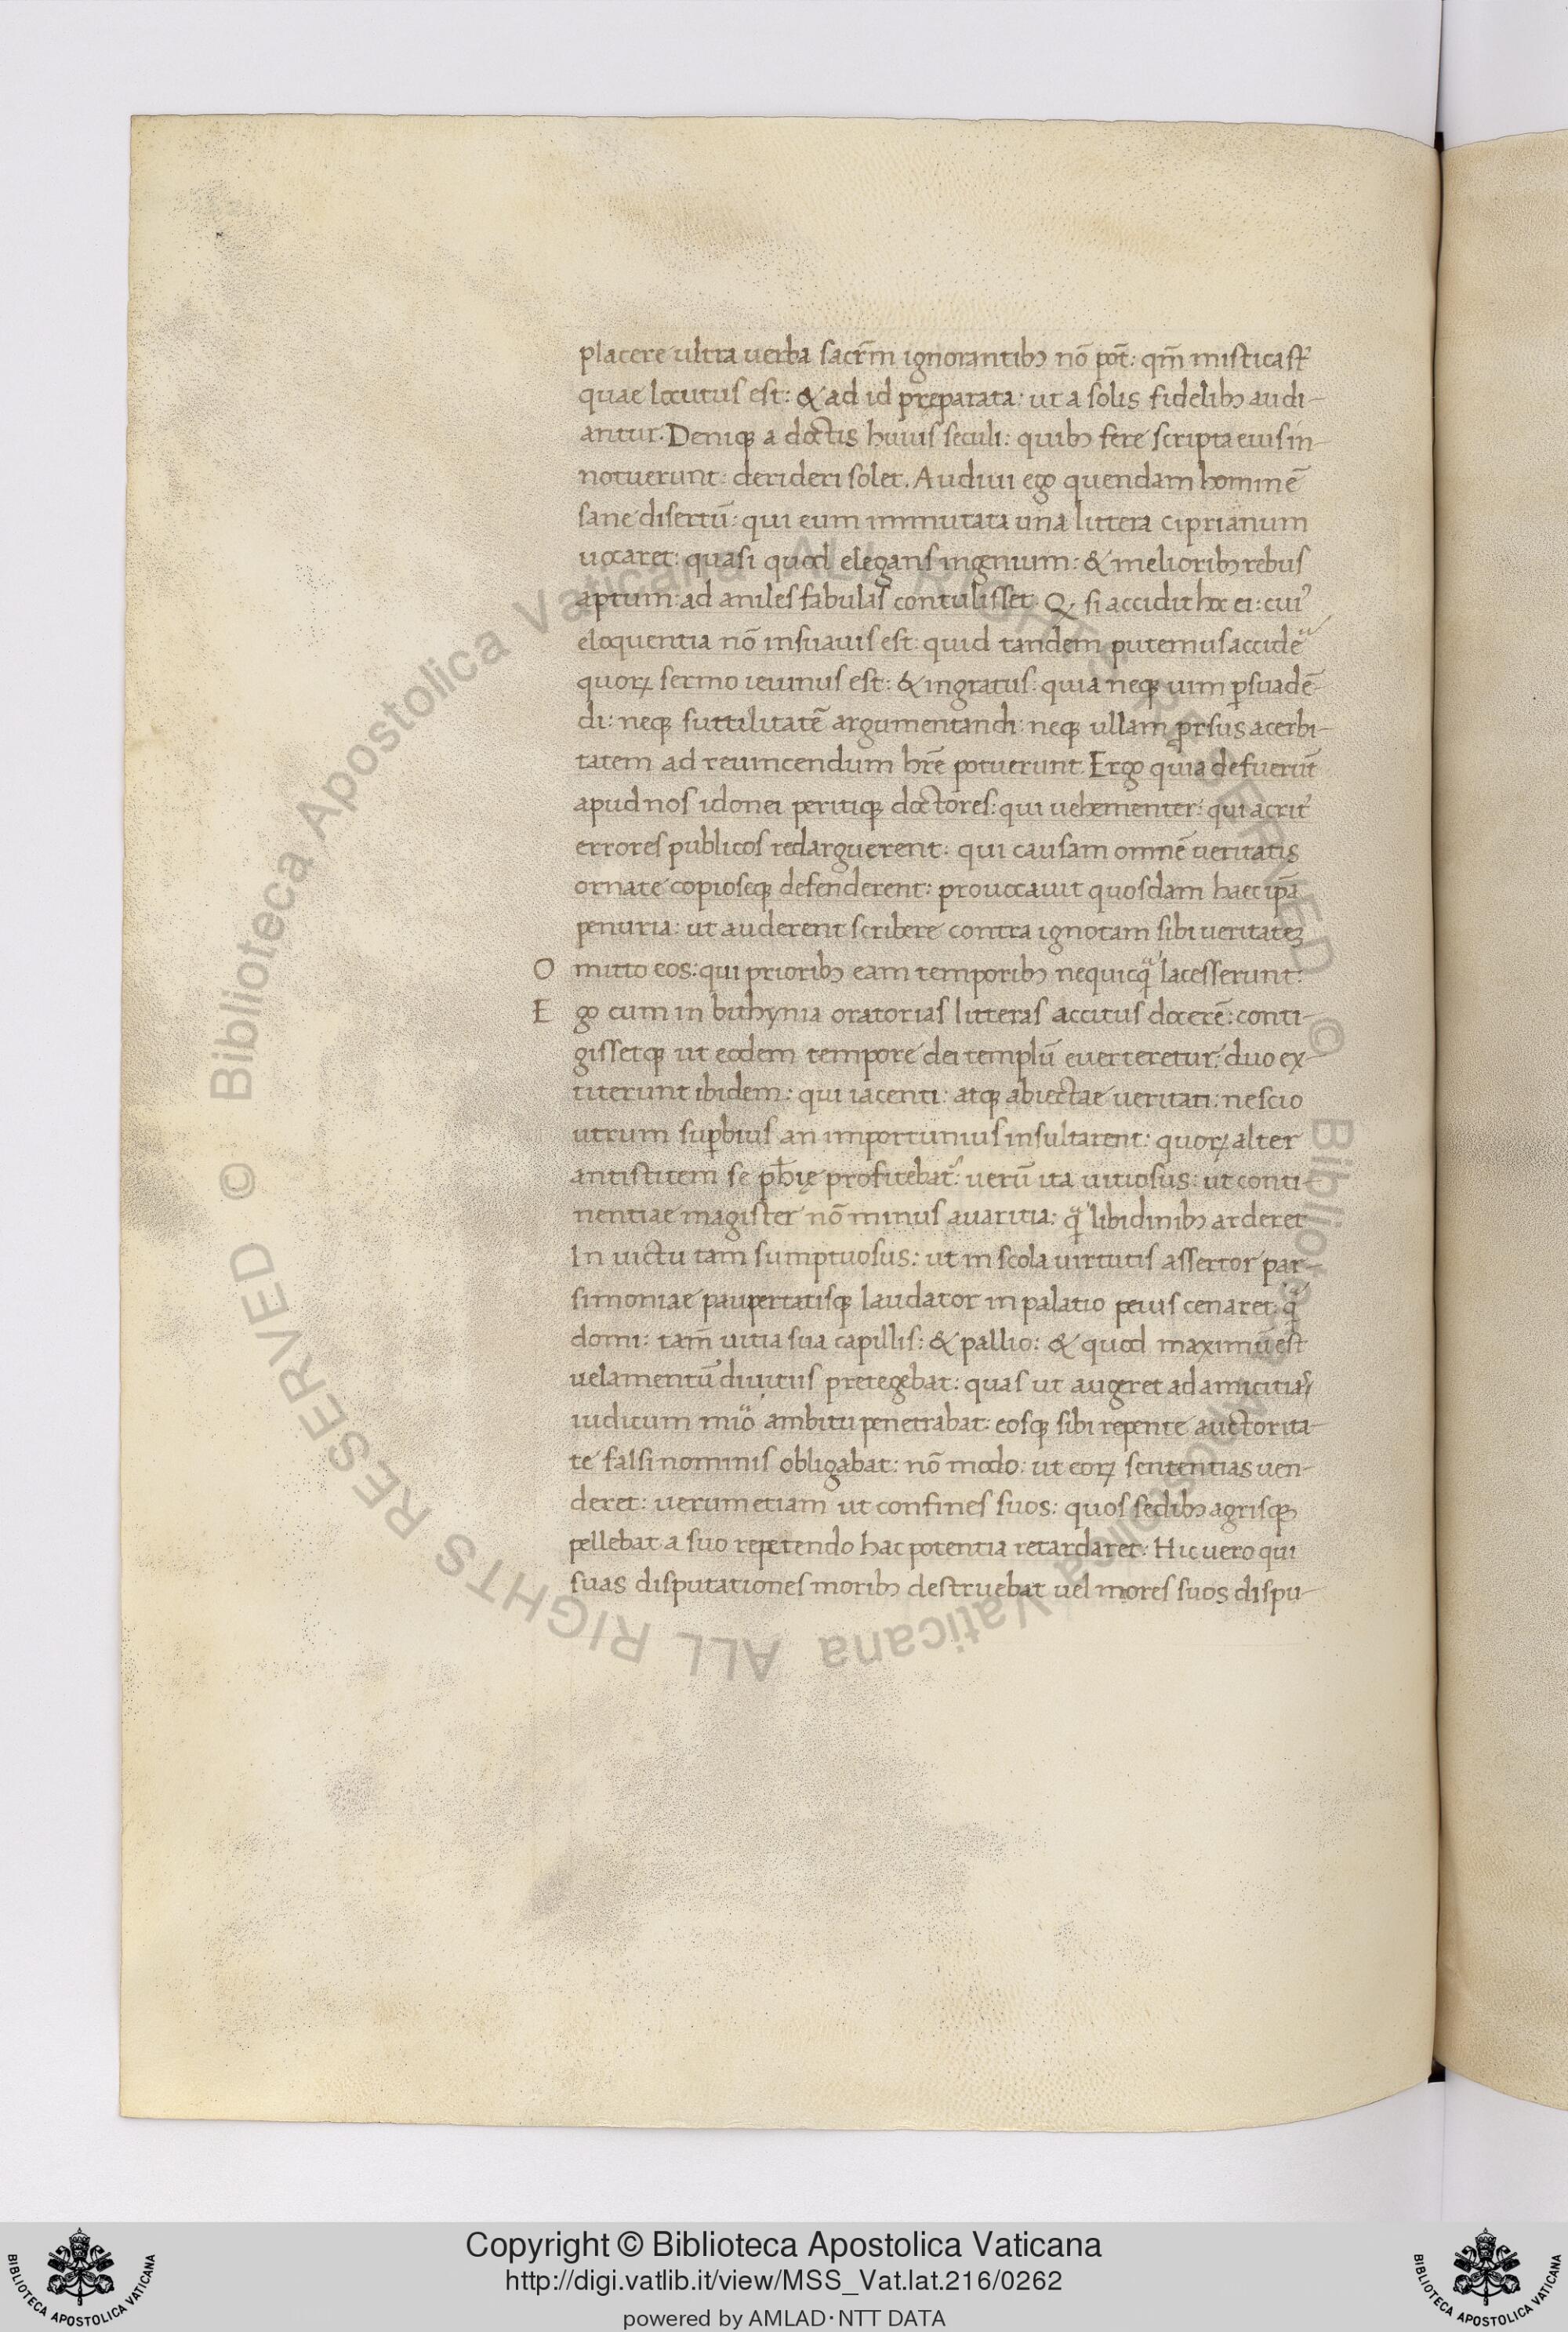 placere ultra uerba sacr̄m ignorantibȝ nō pōt: qm̄ mistica st̄
quae locutus est: & ad id preparata: ut a solis fidelibȝ audi-
antur. Deniqȝ a doctis huius seculi: quibȝ fere scripta eius in-
notuerunt: derideri solet. Audiui ego quendam hominē
sane disertū: qui eum immutata una littera ciprianum
uocaret: quasi quod elegans ingenium: & melioribȝ rebus
aptum: ad aniles fabulas contulisset. Q. si accidit hoc ei: cuiꝰ
eloquentia nō insuauis est: quid tandem putemus accidē
quoꝝ sermo ieiunus est: & ingratus: quia neqȝ uim ꝑsuadē-
di: neqȝ suttilitatē argumentandi: neqȝ ullam ꝓrsus acerbi-
tatem ad reuincendum hr̄e potuerunt. Ergo quia defuerūt
apud nos idonei peritiqȝ doctores: qui uehementer: qui acrit̄
errores publicos redarguerent: qui causam omnē ueritatis
ornate copioseqȝ defenderent: prouocauit quosdam haec ip̄a
penuria: ut auderent scribere contra ignotam sibi ueritateȝ
O mitto eos: qui prioribȝ eam temporibȝ nequicq̄ lacesserunt:
E go cum in bithynia oratorias litteras accitus docerē: conti-
gissetqȝ ut eodem tempore dei templū euerteretur: duo ex-
titerunt ibidem: qui iacenti: atqȝ abiectae ueritati: nescio
utrum suꝑbius an importunius insultarent: quoꝝ alter
antistitem se ph̄ię profitebat̄: uerū ita uitiosus: ut conti-
nentiae magister nō minus auaritia: q̄ libidinibȝ arderet
In uictu tam sumptuosus: ut in scola uirtutis assertor par-
simoniae paupertatisqȝ laudator in palatio peius cenaret: q̄
domi: tam̄ uitia sua capillis: & pallio: & quod maximū est
uelamentū diuitiis pretegebat: quas ut augeret ad amicitias
iudicum mīo ambitu penetrabat: eosqȝ sibi repente auctorita-
te falsi nominis obligabat: nō modo: ut eoꝝ sententias uen-
deret: uerum etiam ut confines suos: quos sedibȝ agrisqȝ
pellebat a suo repetendo hac potentia retardaret: Hic uero qui
suas disputationes moribȝ destruebat uel mores suos dispu-
© Biblioteca Apostolica Vaticana ALL RIGHTS RESERVED
© Biblioteca Apostolica Vaticana ALL RIGHTS RESERVED
BIBLIOTECA APOSTOLICA VATICANA
Copyright © Biblioteca Apostolica Vaticana
http://digi.vatlib.it/view/MSS_Vat.lat.216/0262
powered by AMLAD·NTT DATA
BIBLIOTECA APOSTOLICA VATICANA